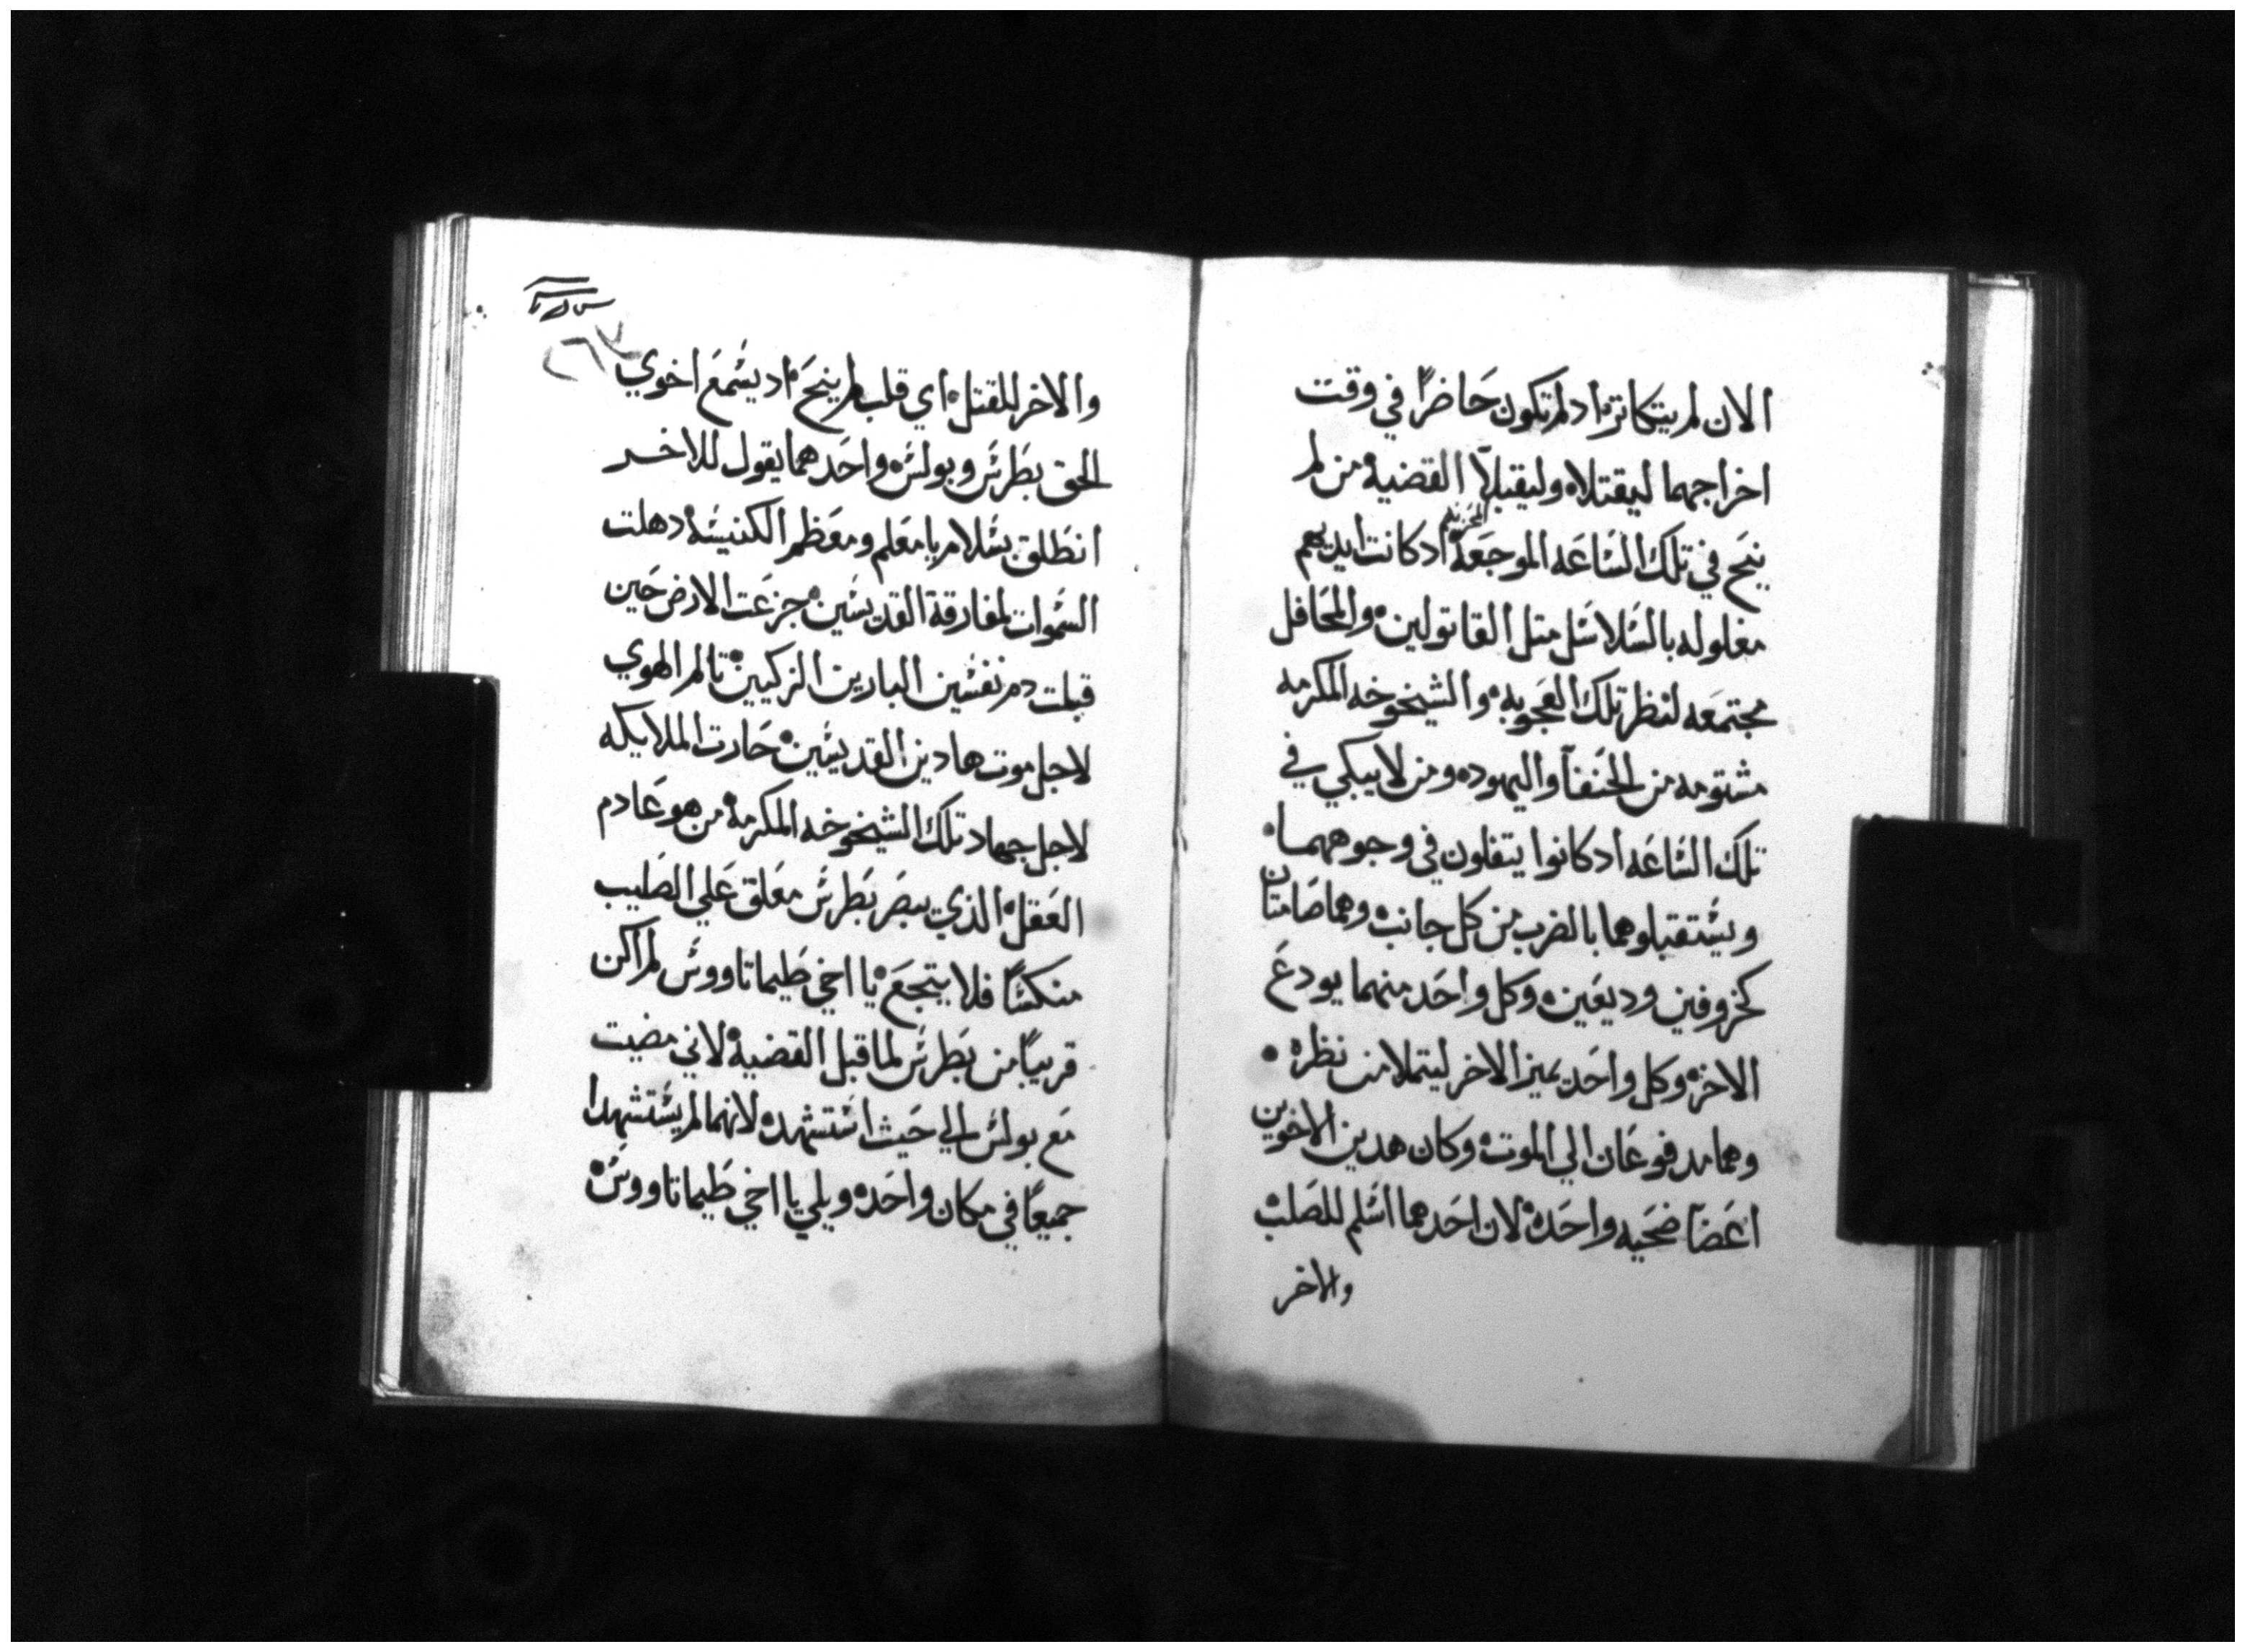 الان لم يتكاتر اد لم تكون حاضرًا في وقت
اخراجهما ليقتلاه وليقبلآ القضيه من لم
ينح في تلك السَاعَه الموجعَة المحزنه اد كانت ايديهم
مغلوله بالسَلاسَل متل القاتولين والمحَافل
مجتمعَه لنظر تلك العَجوبه والشيخوخه المكرمه
مشتومه من الحَنفآ واليهود ومن لا يبكي في
تلك السَاعَه اد كانوا يتفلون في وجوههما
ويسَتقبلوهما بالضرب من كل جانب وهما صَامتان
كخروفين وديعَين وكل واحَد منهما يودعَ
الاخر وكل واحَد يميز الاخر ليتملا من نظره
وهما مدفوعَان الي الموت وكان هدين الاخوين
اعَضآ ضحَيه واحَده لان احَدهما اسَلم للصَلب
والاخر
٢٦٧
والاخر للقتل اي قلب لم ينحَ اد يسَمعَ اخوي
الحق بطَرسَ وبولسَ واحَدهما يقول للاخر
انطَلق بسَلام يا معَلم ومعَظم الكنيسَه دهلت
السَموات لمفارقة القديسَين جزعَت الارض حَين
قبلت دم نفسَين البارين الزكيين تالم الهوي
لاجل موت هادين القديسَين حَارت الملايكه
لاجل جهاد تلك الشيخوخه المكرمه من هو عَادم
العَقل الذي يبصَر بَطرسَ معَلق عَلي الصَليب
منكسًا فلا يتجعَ يا اخي طَيماتاووسَ لم اكن
قريبًا من بطَرسَ لما قبل القضيه لاني مضيت
مَع بولسَ الي حَيث اسَتشهد لانهما لم يسَتشهدا
جميعًا في مكان واحَد ويلي يا اخي طَيماتاووسَ